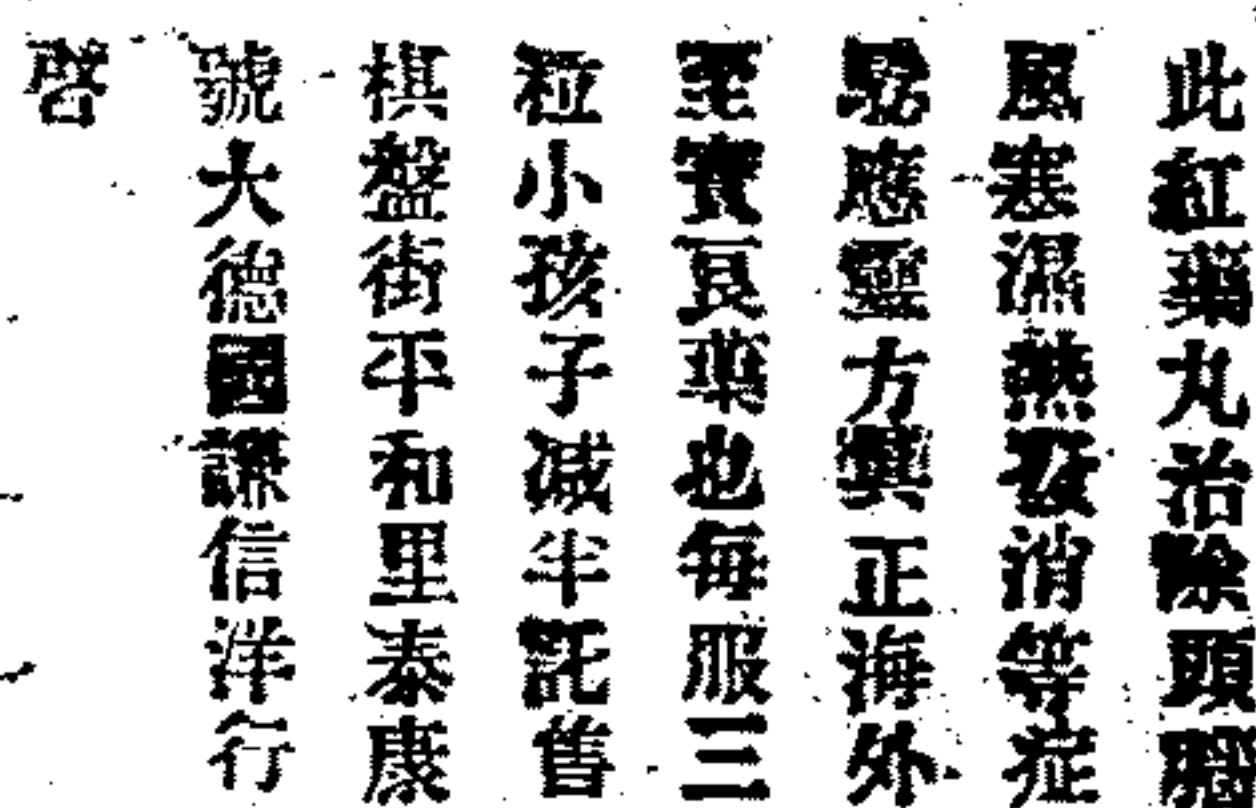 此紅藥丸治除頭腦
風寒濕熱發消等症
騐應靈方真正海外
至寶良藥也每服三
粒小孩子减半託售
棋盤街平和里泰康
號大德國謙信洋行
啓